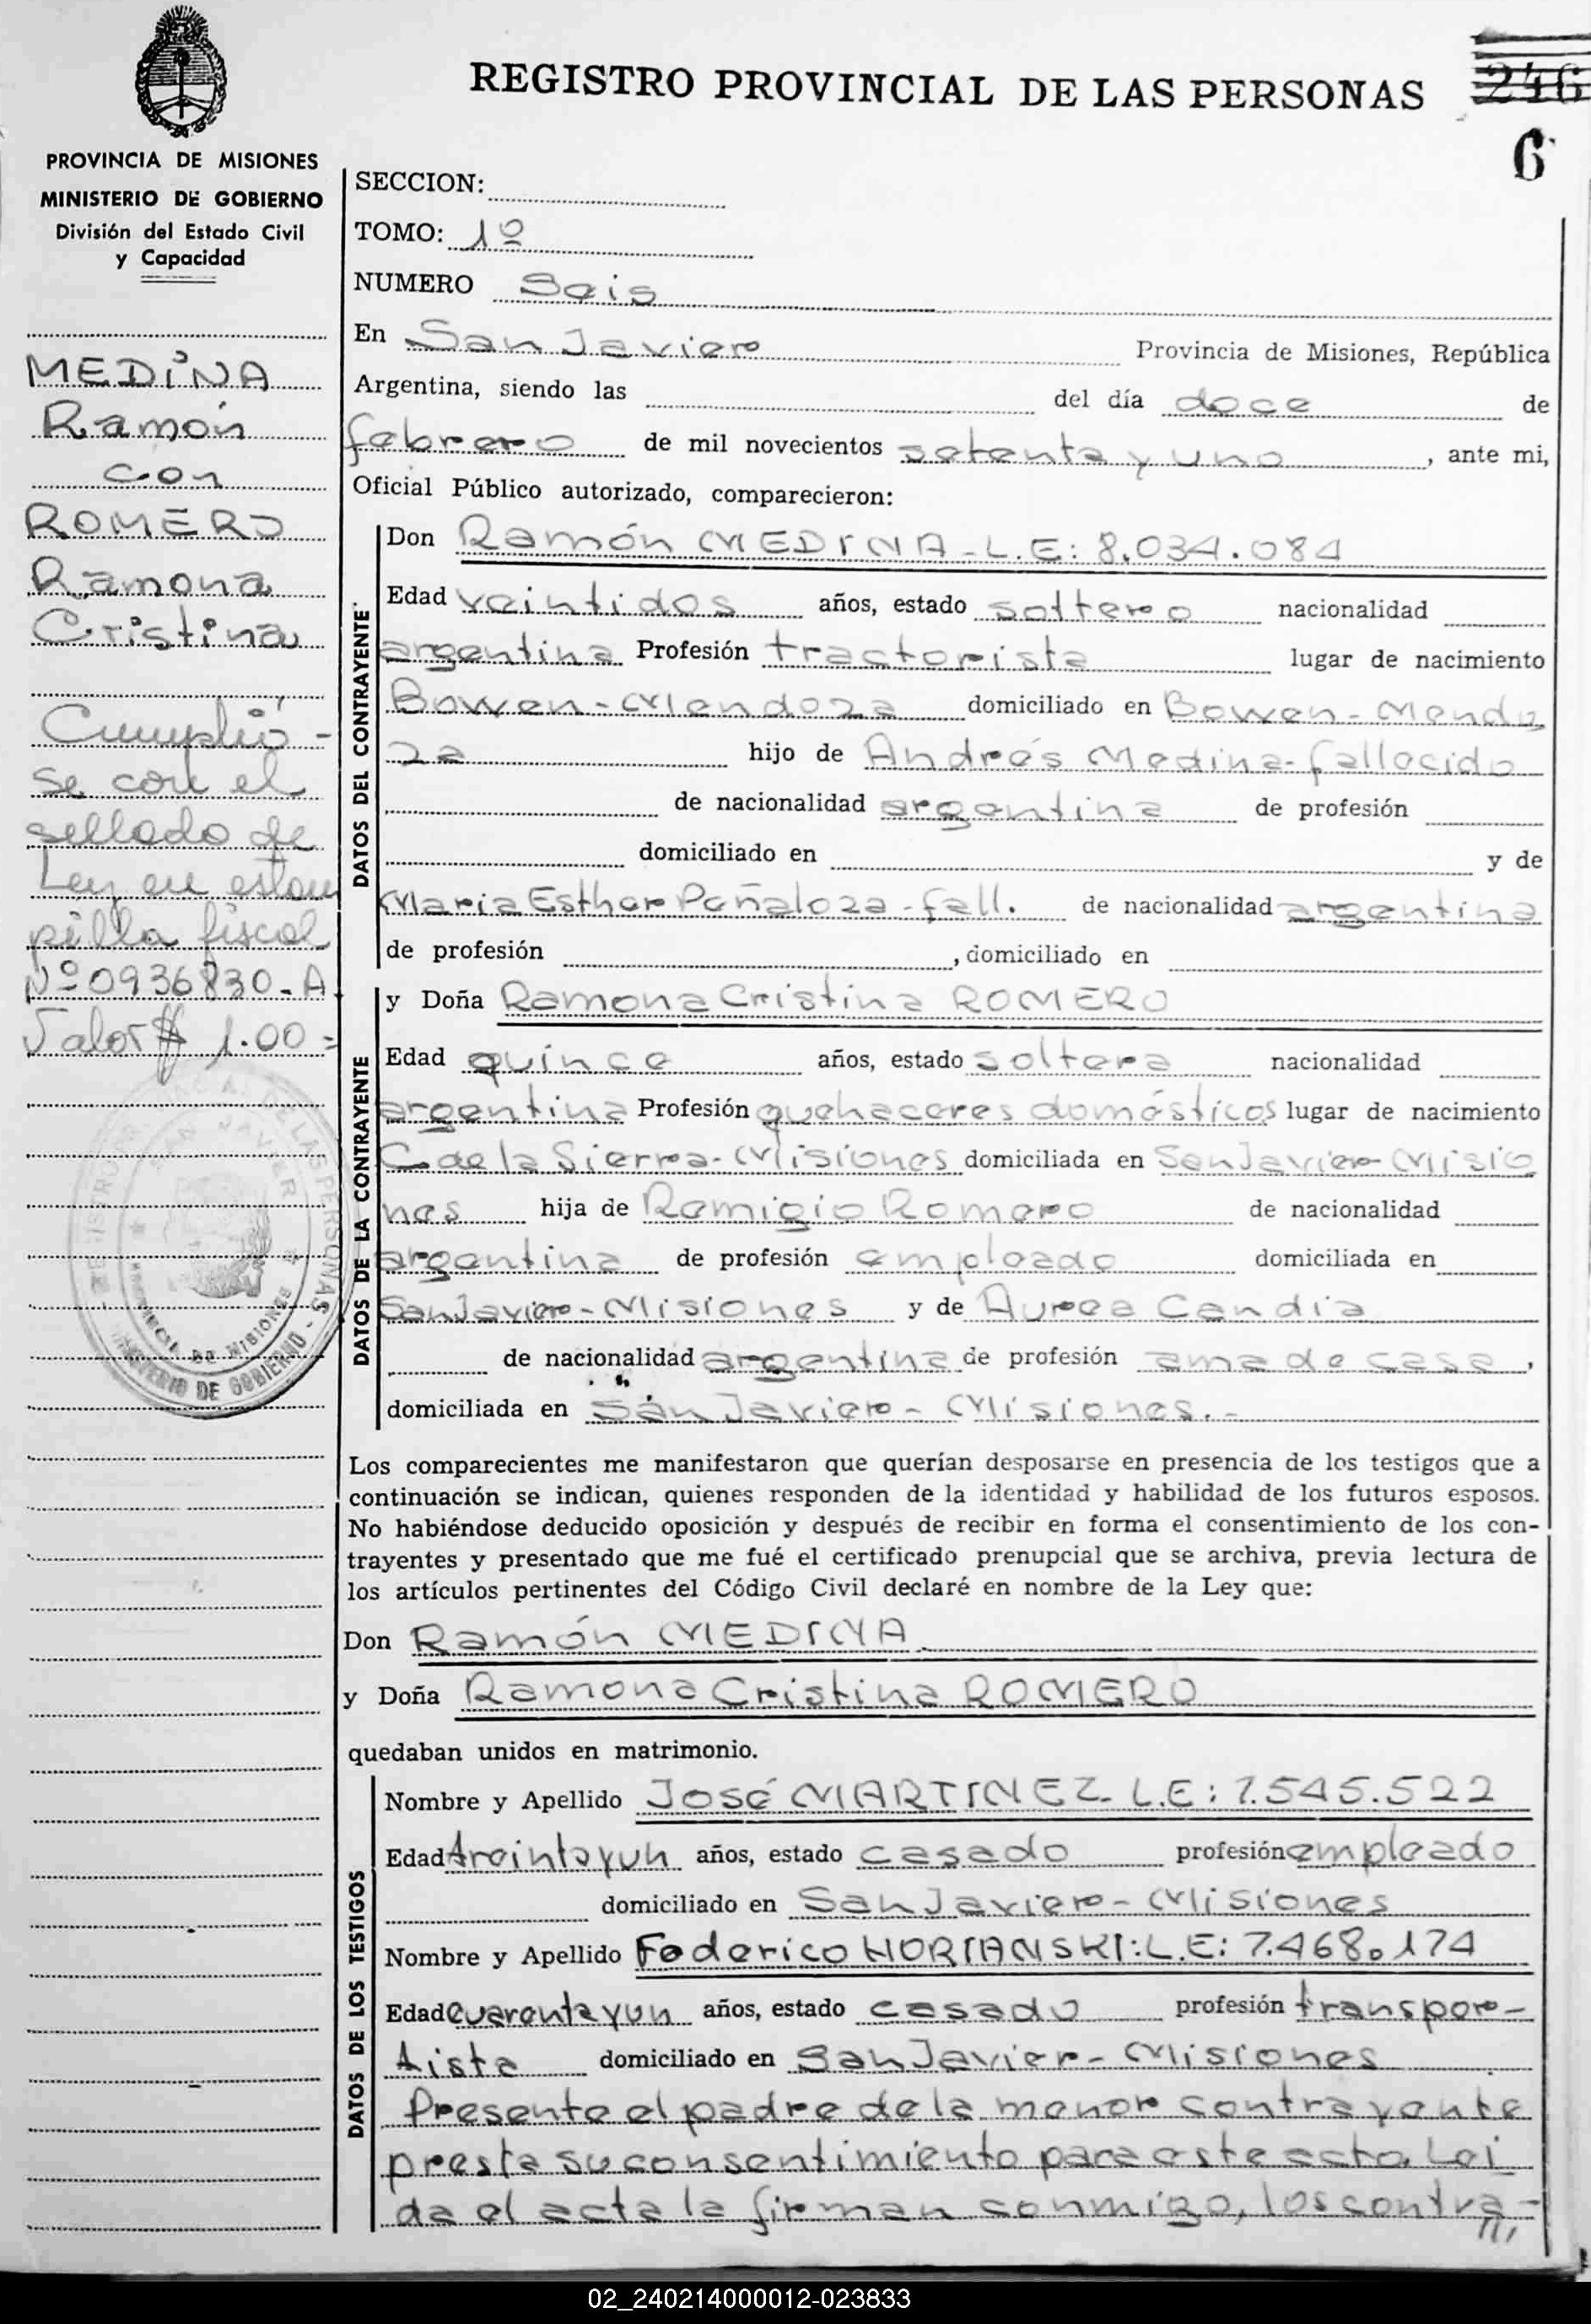 REGISTRO PROVINCIAL DE LAS PERSONAS
246
6
PROVINCIA DE MISIONES
MINISTERIO DE GOBIERNO
División del Estado Civil
y Capacidad
MEDINA
Ramón
con
ROMERO
Ramona
Cristina
Cumplió-
se con el
sellado de
Ley en estam
pilla fiscal
Nº 0936830-A
Valor $ 1.00=
SECCION:
TOMO: 1º
NUMERO Seis
En San Javier Provincia de Misiones, República
Argentina, siendo las del día doce de
febrero de mil novecientos setenta y uno, ante mi,
Oficial Público autorizado, comparecieron:
DATOS DEL CONTRAYENTE
Don Ramón MEDINA - L.E: 8.034.084
Edad veintidos años, estado soltero nacionalidad
argentina Profesión tractorista lugar de nacimiento
Bowen-Mendoza domiciliado en Bowen-Mendo
za hijo de Andrés Medina-fallecido
de nacionalidad argentina de profesión
domiciliado en y de
Maria Esther Peñaloza-fall. de nacionalidad argentina
de profesión , domiciliado en
DATOS DE LA CONTRAYENTE
y Doña Ramona Cristina ROMERO
Edad quince años, estado soltera nacionalidad
argentina Profesión quehaceres domésticos lugar de nacimiento
C. de la Sierra-Misiones domiciliada en San Javier-Misio
nes hija de Remigio Romero de nacionalidad
argentina de profesión empleado domiciliada en
San Javier-Misiones y de Aurea Candia
de nacionalidad argentina de profesión ama de casa,
domiciliada en San Javier - Misiones.-
Los comparecientes me manifestaron que querían desposarse en presencia de los testigos que a
continuación se indican, quienes responden de la identidad y habilidad de los futuros esposos.
No habiéndose deducido oposición y después de recibir en forma el consentimiento de los con-
trayentes y presentado que me fué el certificado prenupcial que se archiva, previa lectura de
los artículos pertinentes del Código Civil declaré en nombre de la Ley que:
Don Ramón MEDINA
y Doña Ramona Cristina ROMERO
quedaban unidos en matrimonio.
DATOS DE LOS TESTIGOS
Nombre y Apellido José MARTINEZ- L.E: 7.545.522
Edad treinta y un años, estado casado profesión empleado
domiciliado en San Javier-Misiones
Nombre y Apellido Federico HORIANSKI: L.E: 7.468.174
Edad cuarenta y un años, estado casado profesión transpor-
tista domiciliado en San Javier-Misiones
Presente el padre de la menor contrayente
presta su consentimiento para este acto. Lei
da el acta la firman conmigo, los contra-
///,
02_240214000012-023833